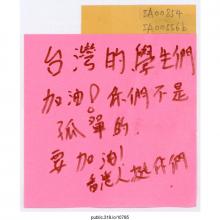 IA00854
IA00556b
台灣的學生們
加油！你們不是
孤單的.
要加油!
香港人挺你們
public.318.io/10765